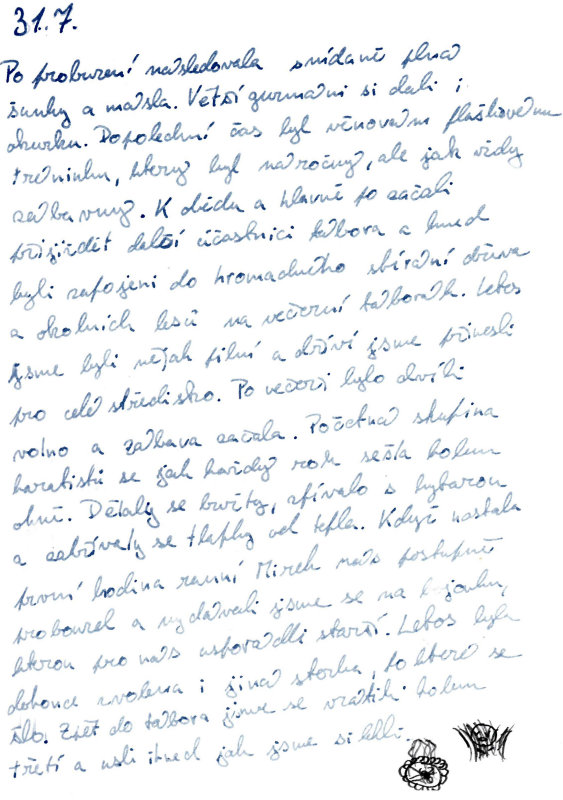 31.7.
Po probuzení následovala snídaně plná
šunky a másla. Větší gurmáni si dali i
okurku. Dopolední čas byl věnovaný fláškovému
tréninku, který byl náročný, ale jak vždy
zábavný. K obědu a hlavně po začali
přijíždět další účastníci tábora a hned
byli zapojeni do hromadného sbírání dřeva
z okolních lesů na večerní táborák. Letos
jsme byli nějak pilní a dříví jsme přinesli
pro celé středisko. Po večeři bylo chvíli
volno a zábava začala. Početná skupina
karatistů se jak každý rok sešla kolem
ohně. Dělaly se buřty, zpívalo s kytarou
a zahřívaly se tlapky od tepla. Když nastala
první hodina ranní Mirek nás postupně
probouzel a vydávali jsme se na bojovku,
kterou pro nás uspořádali starší. Letos byla
dokonce zvolena i jiná stezka, po které se
šlo. Zpět do tábora jsme se vrátili kolem
třetí a usli ihned jak jsme si lehli.